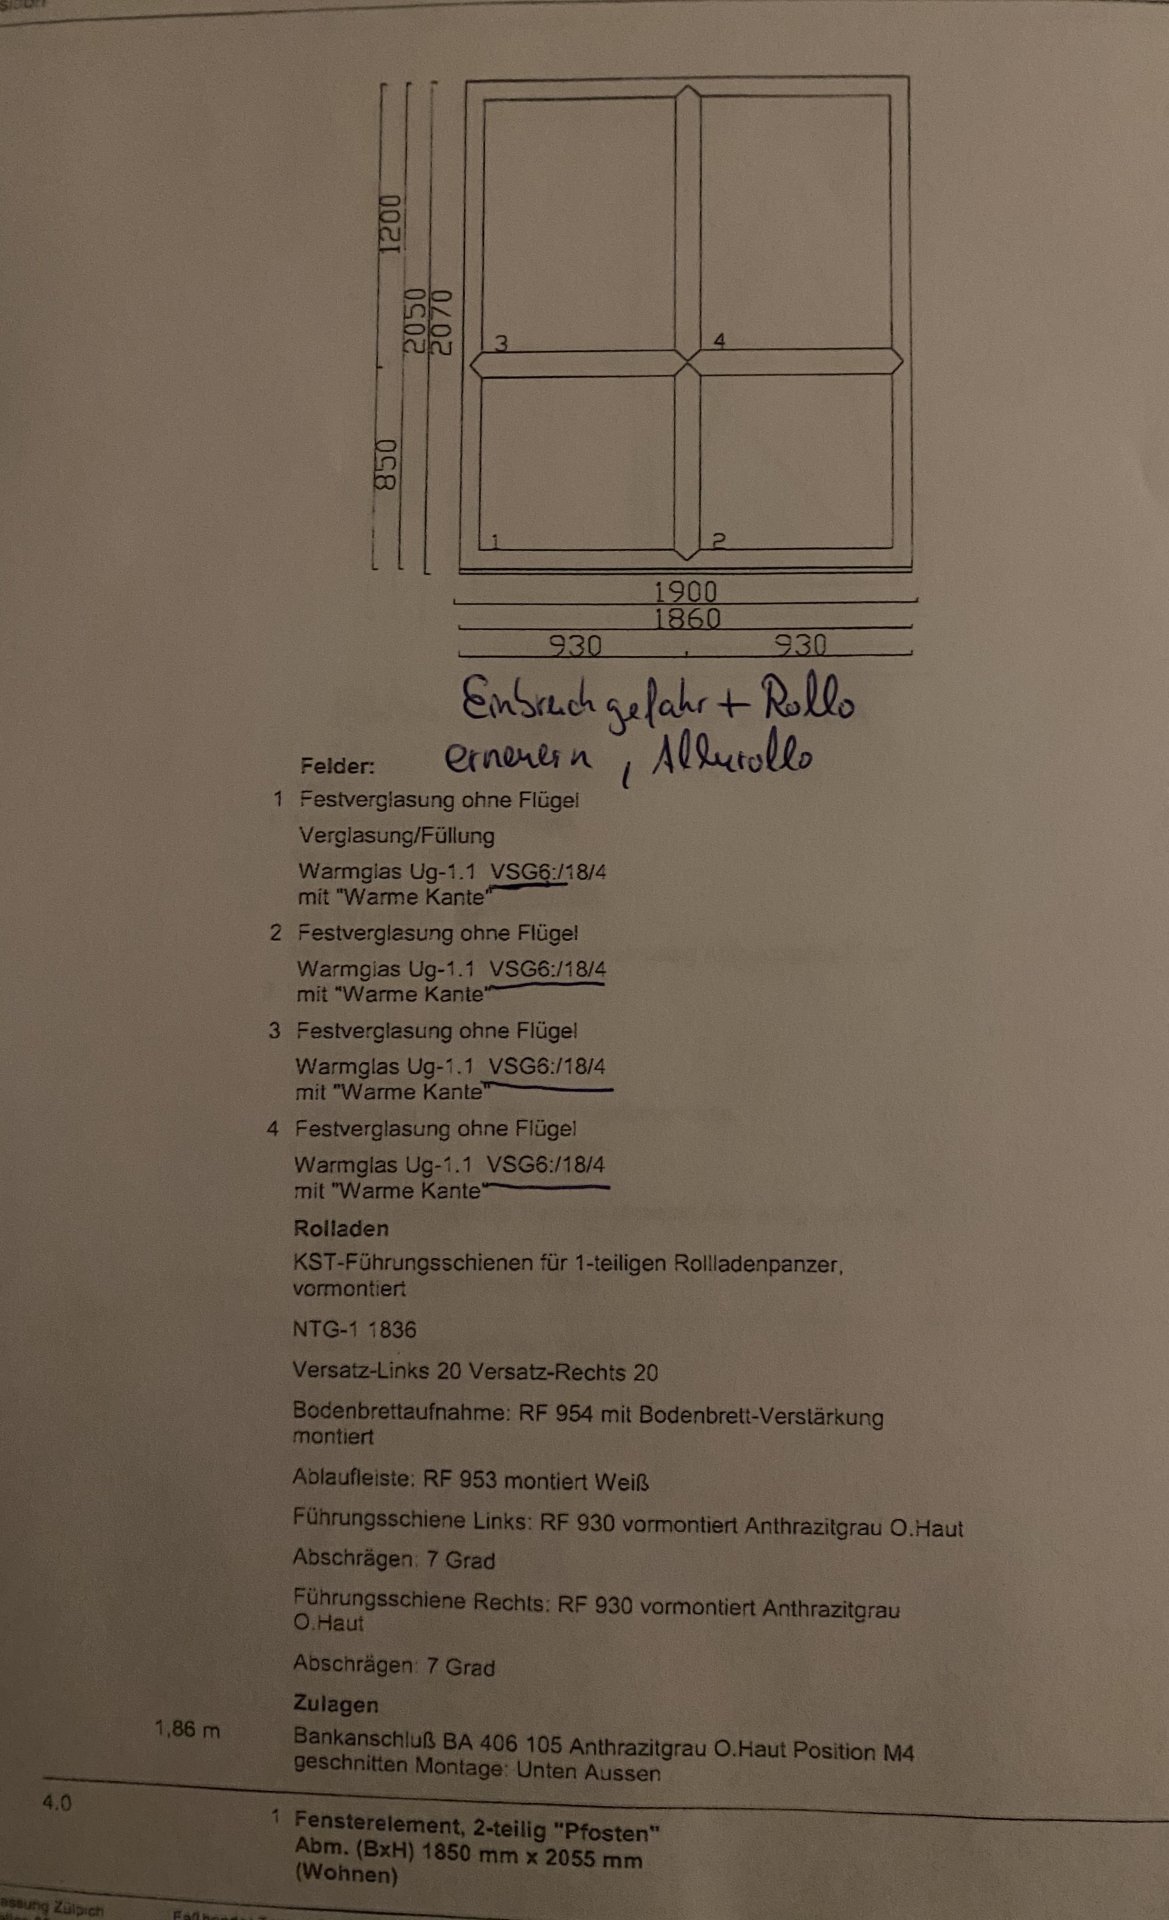 1200
2050
2070
850
3
4
1
2
1900
1860
930 930
Einbruchgefahr + Rollo
erneuern, Allurollo
Felder:
1 Festverglasung ohne Flügel
Verglasung/Füllung
Warmglas Ug-1.1 VSG6:/18/4
mit "Warme Kante"
2 Festverglasung ohne Flügel
Warmglas Ug-1.1 VSG6:/18/4
mit "Warme Kante"
3 Festverglasung ohne Flügel
Warmglas Ug-1.1 VSG6:/18/4
mit "Warme Kante"
4 Festverglasung ohne Flügel
Warmglas Ug-1.1 VSG6:/18/4
mit "Warme Kante"
Rolladen
KST-Führungsschienen für 1-teiligen Rollladenpanzer,
vormontiert
NTG-1 1836
Versatz-Links 20 Versatz-Rechts 20
Bodenbrettaufnahme: RF 954 mit Bodenbrett-Verstärkung
montiert
Ablaufleiste: RF 953 montiert Weiß
Führungsschiene Links: RF 930 vormontiert Anthrazitgrau O.Haut
Abschrägen: 7 Grad
Führungsschiene Rechts: RF 930 vormontiert Anthrazitgrau
O.Haut
Abschrägen: 7 Grad
Zulagen
1,86 m Bankanschluß BA 406 105 Anthrazitgrau O.Haut Position M4
geschnitten Montage: Unten Aussen
4.0 1 Fensterelement, 2-teilig "Pfosten"
Abm. (BxH) 1850 mm x 2055 mm
(Wohnen)
Zülpich